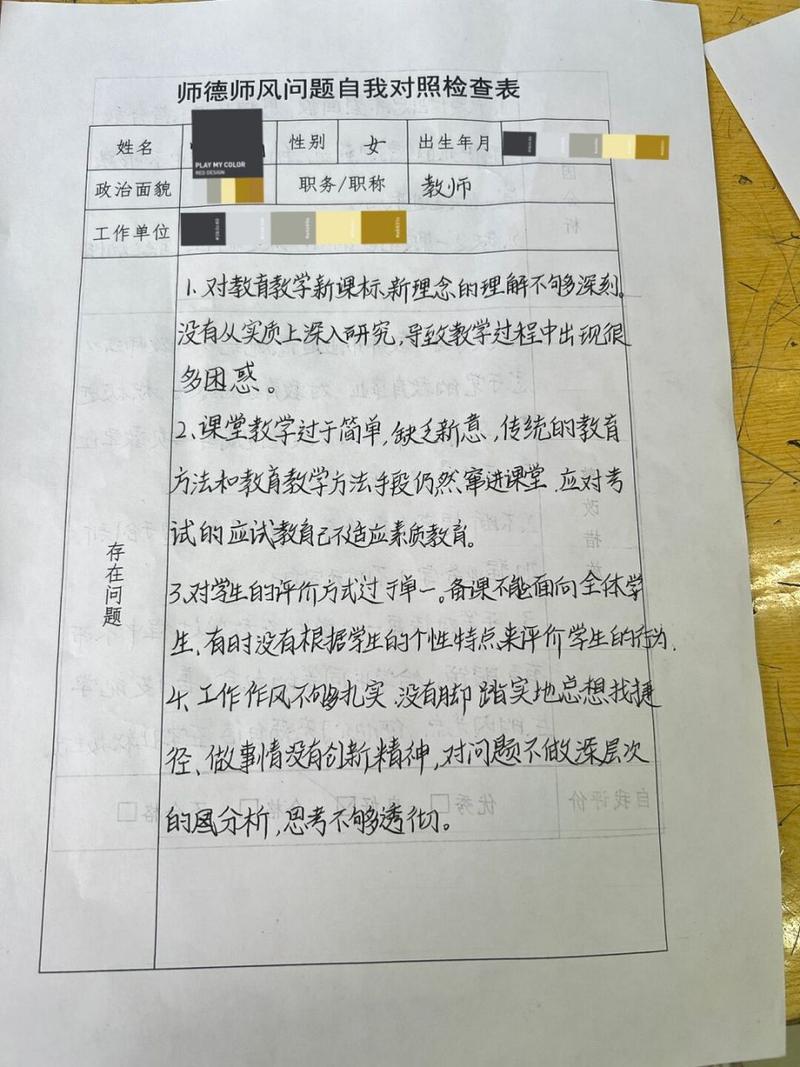 师德师风问题自我对照检查表
姓名 性别 女 出生年月
PLAY MY COLOR
RED DESIGN
政治面貌 职务/职称 教师
工作单位
存在问题
1. 对教育教学新课标、新理念的理解不够深刻。
没有从实质上深入研究,导致教学过程中出现很
多困惑。
2、课堂教学过于简单,缺乏新意,传统的教育
方法和教育教学方法手段仍然窜进课堂.应对考
试的应试教自己不适应素质教育。
3、对学生的评价方式过于单一。备课不能面向全体学
生、有时没有根据学生的个性特点来评价学生的行为.
4、工作作风不够扎实.没有脚踏实地总想找捷
径、做事情没有创新精神,对问题不做深层次
的因分析,思考不够透彻。
因分析
改措
自我评价 优秀□ 合格□ 格□